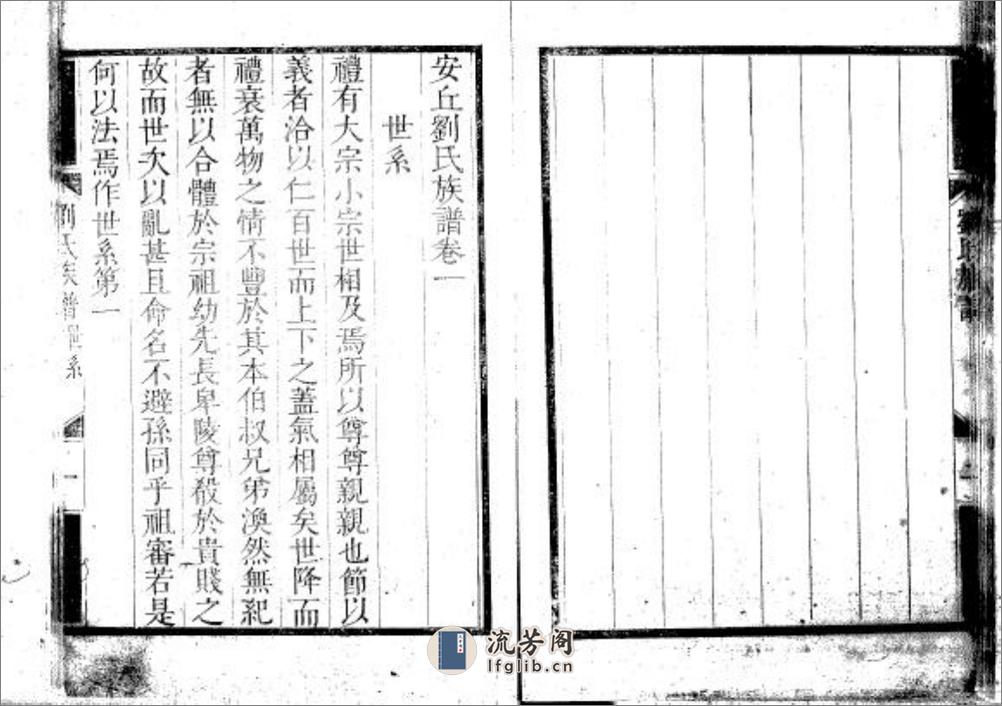 劉氏族譜
安丘劉氏族譜卷一
世系
禮有大宗小宗世相及焉所以尊尊親親也節以
義者洽以仁百世而上下之蓋氣相屬矣世降而
禮衰萬物之情不豐於其本伯叔兄弟渙然無紀
者無以合體於宗祖幼先長卑陵尊殺於貴賤之
故而世次以亂甚且命名不避孫同乎祖審若是
何以法焉作世系第一
劉氏族譜 世系 一
流芳阁
lfglib.cn